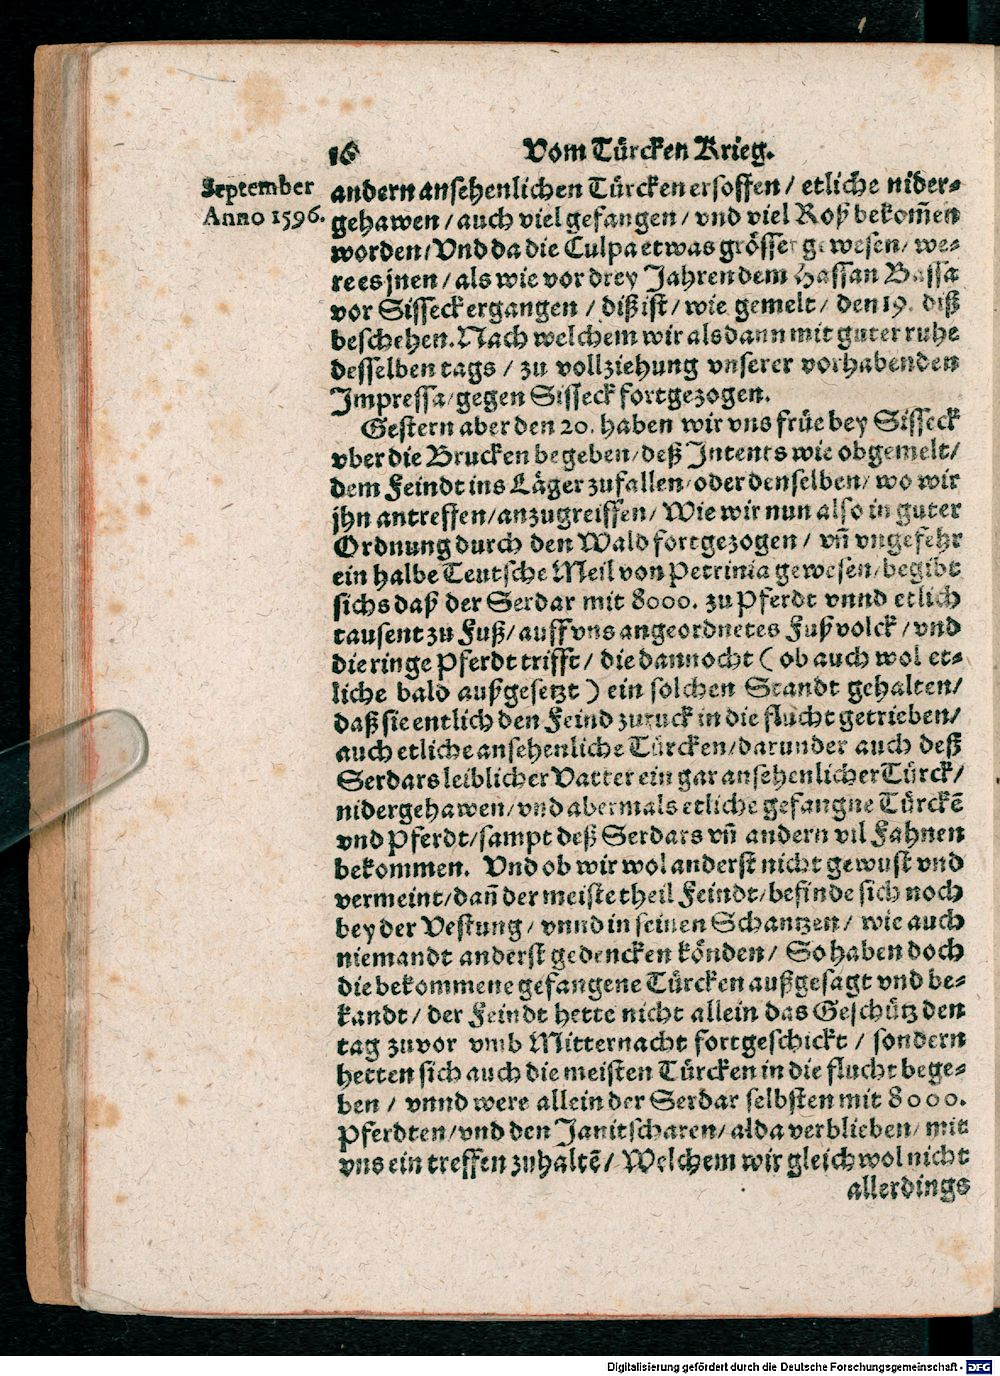 16
Vom Türcken Krieg.
September
Anno 1596.
andern ansehenlichen Türcken ersoffen / etliche nider-
gehawen / auch viel gefangen / vnd viel Roß bekom̃en
worden / Vnd da die Culpa etwas grösser gewesen / we-
re es jnen / als wie vor drey Jahren dem Hassan Bassa
vor Sisseck ergangen / diß ist / wie gemelt / den 19. diß
beschehen. Nach welchem wir alsdann mit guter ruhe
desselben tags / zu vollziehung vnserer vorhabenden
Impressa / gegen Sisseck fortgezogen.
Gestern aber den 20. haben wir vns früe bey Sisseck
vber die Brucken begeben / deß Intents wie obgemelt /
dem Feindt ins Läger zufallen / oder denselben / wo wir
jhn antreffen / anzugreiffen / Wie wir nun also in guter
Ordnung durch den Wald fortgezogen / vñ vngefehr
ein halbe Teutsche Meil von Petrinia gewesen / begibt
sichs daß der Serdar mit 8000. zu Pferdt vnnd etlich
tausent zu Fuß / auff vns angeordnetes Fußvolck / vnd
die ringe Pferdt trifft / die dannocht ( ob auch wol et-
liche bald außgesetzt ) ein solchen Standt gehalten /
daß sie entlich den Feind zuruck in die flucht getrieben /
auch etliche ansehenliche Türcken / darunder auch deß
Serdars leiblicher Vatter ein gar ansehenlicher Türck /
nidergehawen / vnd abermals etliche gefangne Türckẽ
vnd Pferdt / sampt deß Serdars vñ andern vil Fahnen
bekommen. Vnd ob wir wol anderst nicht gewust vnd
vermeint / dañ der meiste theil Feindt / befinde sich noch
bey der Vestung / vnnd in seinen Schantzen / wie auch
niemandt anderst gedencken könden / So haben doch
die bekommene gefangene Türcken außgesagt vnd be-
kandt / der Feindt hette nicht allein das Geschütz den
tag zuvor vmb Mitternacht fortgeschickt / sondern
hetten sich auch die meisten Türcken in die flucht bege-
ben / vnnd were allein der Serdar selbsten mit 8000.
Pferdten / vnd den Janitscharen / alda verblieben / mit
vns ein treffen zuhaltẽ / Welchem wir gleichwol nicht
allerdings
Digitalisierung gefördert durch die Deutsche Forschungsgemeinschaft - DFG